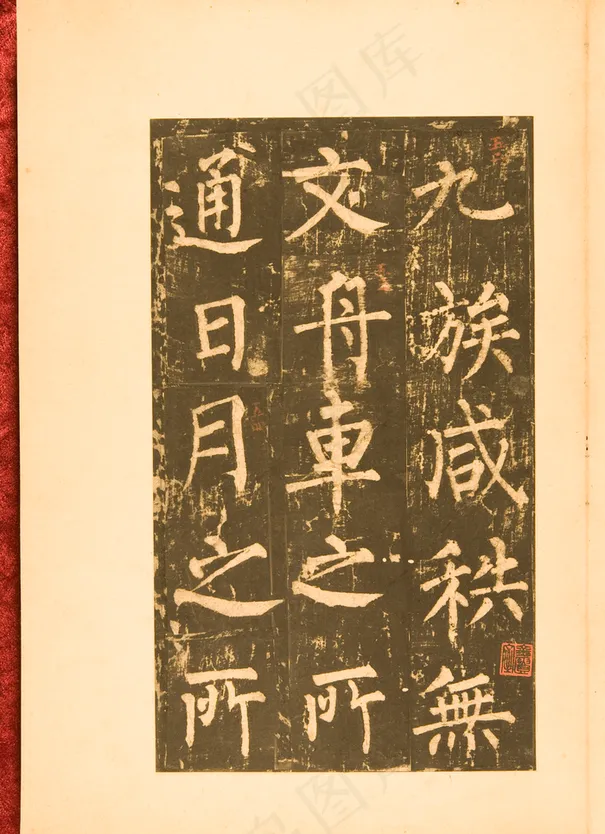 九族咸秩無
文舟車之所
通日月之所
图库